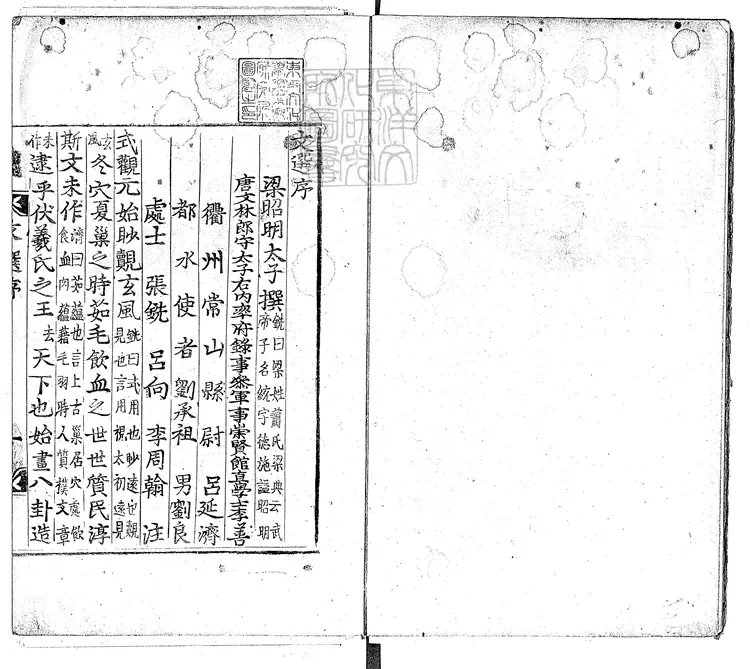 文選序
梁昭明太子撰 銑曰梁姓蕭氏梁典云武帝子名統字德施謚昭明
唐文林郎守太子右內率府錄事參軍事崇賢館直學士李善
衢州常山縣尉 呂延濟
都水使者劉承祖 男劉良
處士 張銑 呂向 李周翰 注
式觀元始眇覿玄風 銑曰式用也眇遠也覿見也言用視太初遠見玄風
冬穴夏巢之時茹毛飲血之世世質民淳
斯文未作 濟曰茹蘊也言上古巢居穴處飲食血肉蘊藉毛羽時人質樸文章未作
逮乎伏羲氏之王去天下也始畫八卦造
文選序
一